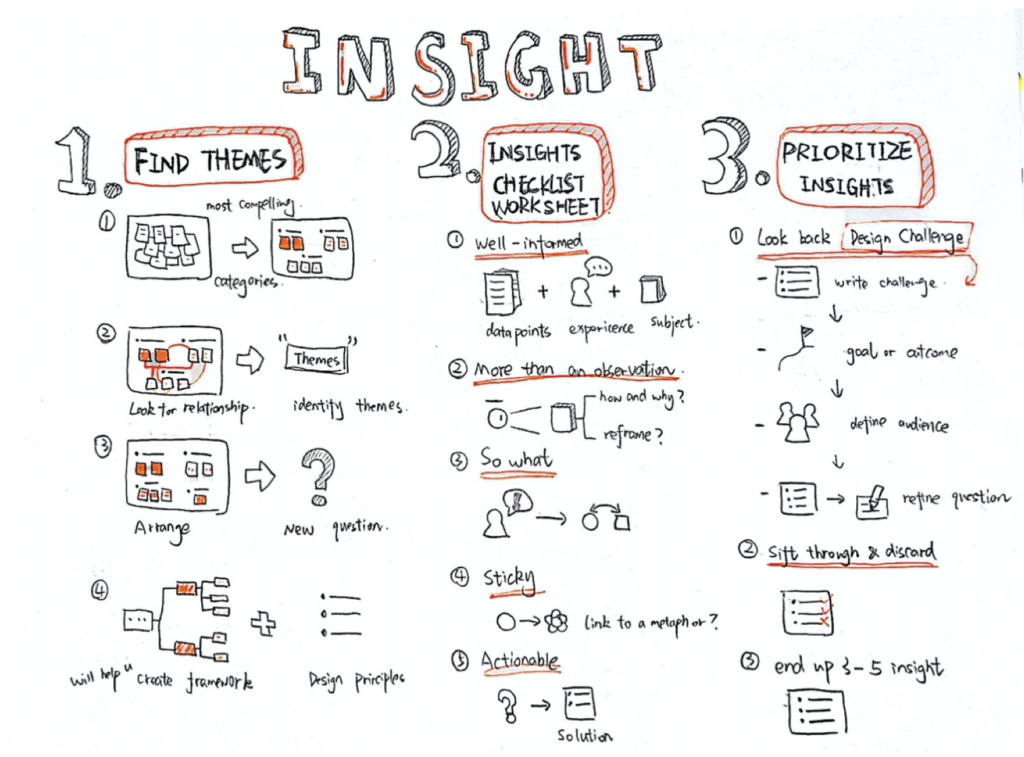 INSIGHT
1.
FIND THEMES
①
most compelling
categories.
②
Look for relationship.
"Themes"
identify themes.
③
Arrange
?
New question.
④
...
will help "create framework
Design priciples
2.
INSIGHTS
CHECKLIST
WORKSHEET
① Well-informed
+ +
data points experience subject.
② More than an observation.
how and why?
reframe?
③ So what
!
④ Sticky
Link to a metaphor?
⑤ Actionable
?
Solution
3.
PRIORITIZE
INSIGHTS
① Look back Design Challenge
- write challenge.
- goal or outcome
- define audience
- refine question
② Sift through & discard
③ end up 3-5 insight